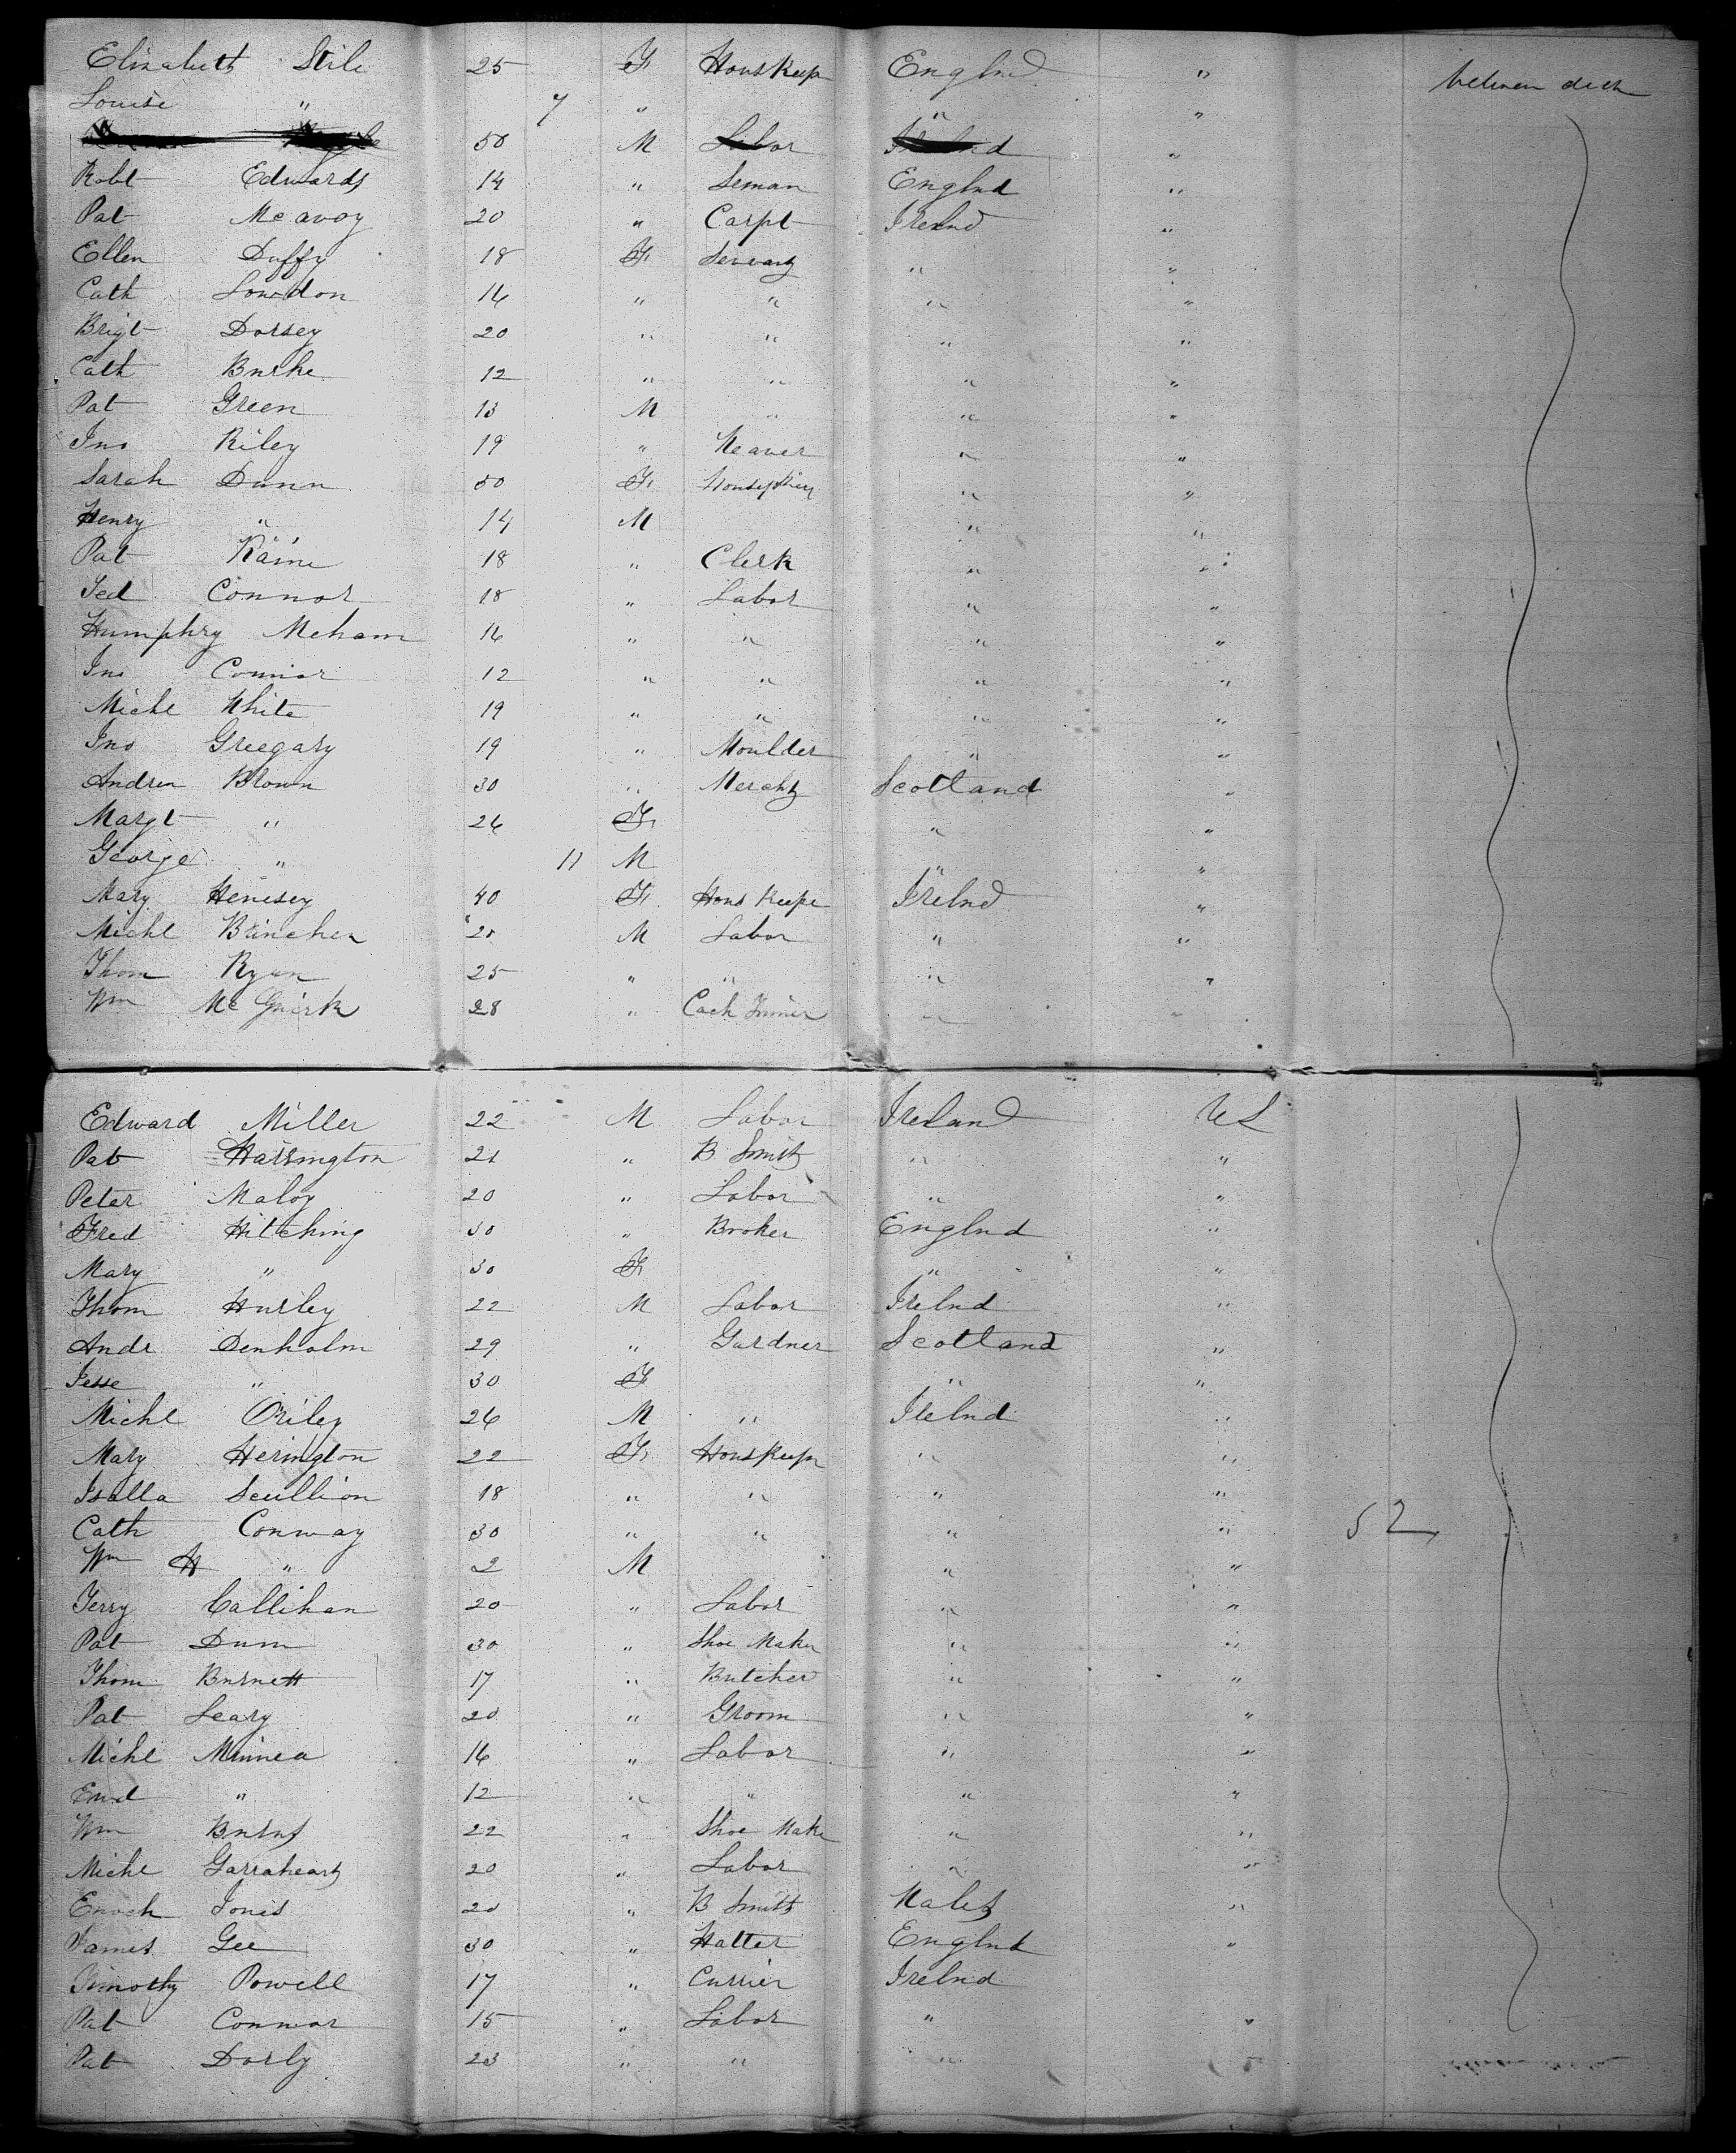 Elizabeth Stile 25 F HousKeep Englnd " between deck
Louise " 7 " " "
50 M Labor "
Robt Edwards 14 " Seman Englnd "
Pat McAvoy 20 " Carpt Irelnd "
Ellen Duffy 18 F Servant " "
Cath Lowdon 16 " " " "
Brigt Dorsey 20 " " " "
Cath Burke 12 " " " "
Pat Green 13 M " " "
Jno Riley 19 " Weaver " "
Sarah Dunn 50 F " "
Henry " 14 M " "
Pat Kaine 18 " Clerk " "
Ted Connor 18 " Labor " "
Humphry Meham 16 " " " "
Jno Connor 12 " " " "
Michl White 19 " " " "
Jno Greegary 19 " Moulder " "
Andrew Brown 30 " Mercht Scotland "
Margt " 26 F " "
George " 11 M " "
Mary Henesey 40 F Hous Keepe Irelnd "
Michl 20 M Labor " "
Thom Ryan 25 " " " "
Wm McGuirk 28 " " "
Edward Miller 22 M Labor Ireland US
Pat Harrington 21 " B Smith " "
Peter Maloy 20 " Labor " "
Fred Hitching 30 " Broker Englnd "
Mary " 30 F " "
Thom Hurley 22 M Labor Irelnd "
Andr Denholm 29 " Gardner Scotland "
Jesse " 30 F " "
Michl Oriley 26 M " Irelnd "
Mary Herington 22 F HousKeepr " "
Isalla Scullion 18 " " " "
Cath Conway 30 " " " " 52
Wm H " 2 M " "
Jerry Callihan 20 " Labor " "
Pat Dunn 30 " Shoe Maker " "
Thom Burnett 17 " Butcher " "
Pat Leary 20 " Groom " "
Michl Minnea 16 " Labor " "
" 12 " " " "
Wm Burns 22 " Shoe Make " "
Michl 20 " Labor " "
Enoch Jones 20 " B Smith Wales "
James Gee 30 " Hatter Englnd "
Timothy Powell 17 " Currier Irelnd
Pat Connor 15 " Labor " "
Pat Dorly 23 " " " "